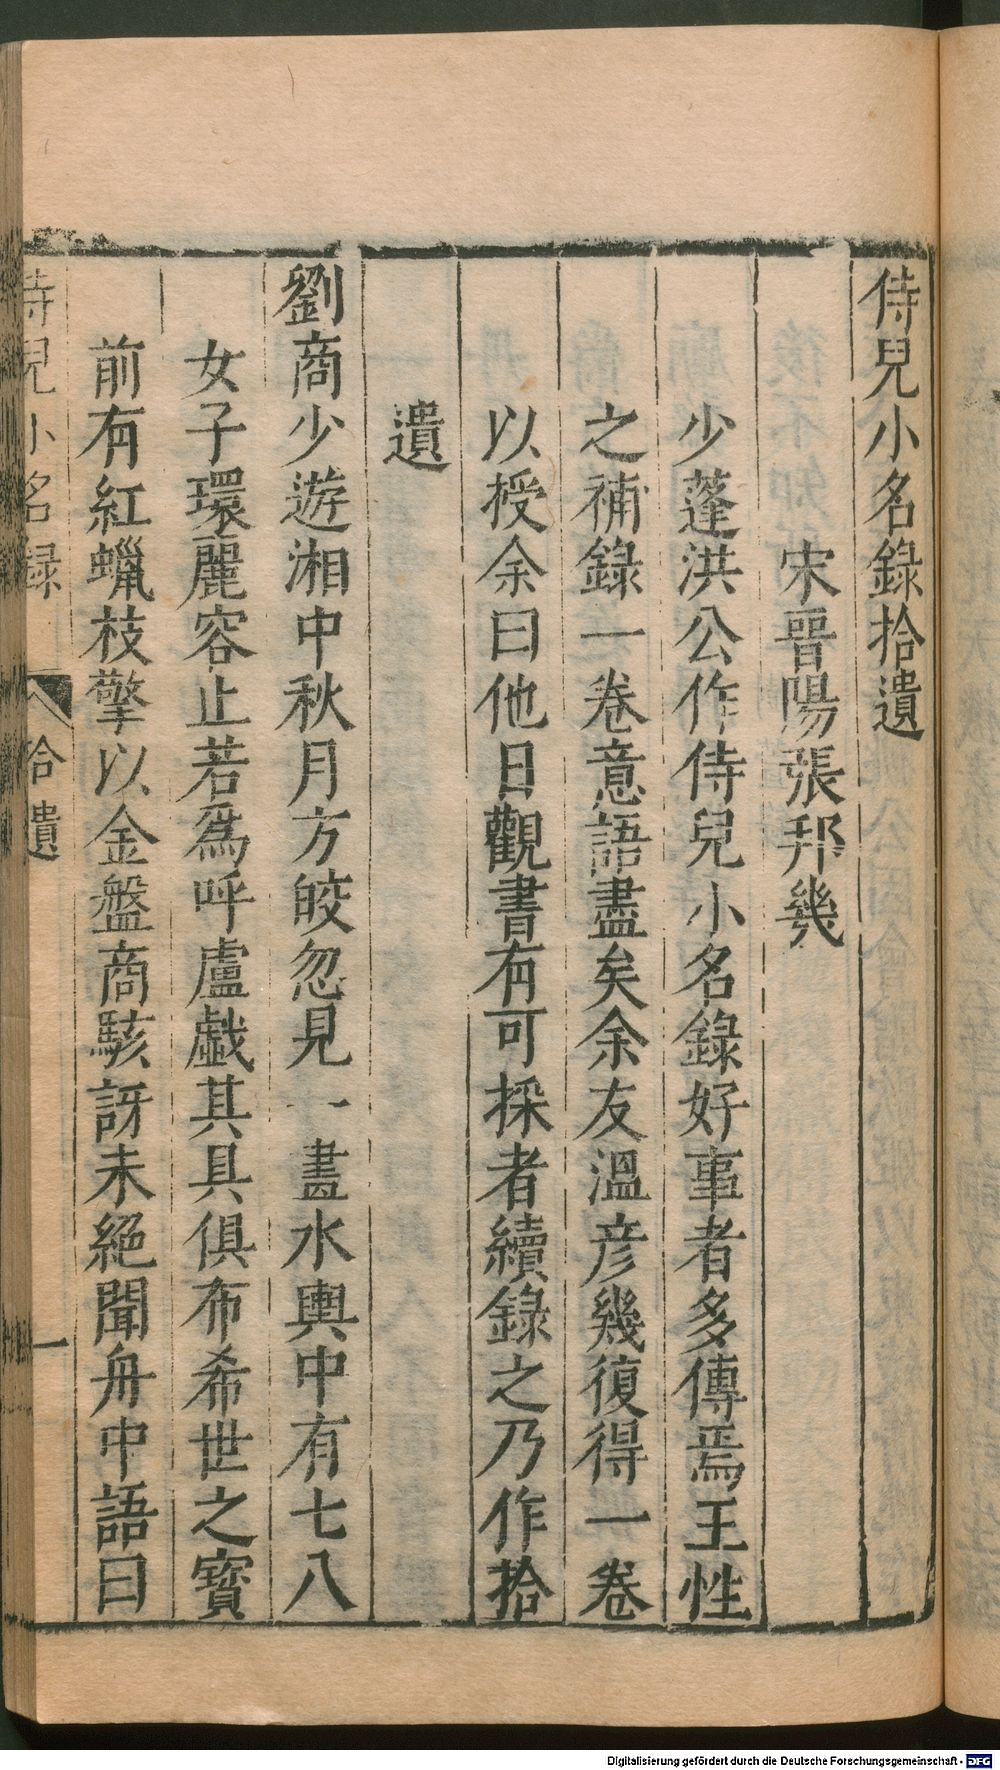 侍兒小名錄拾遺
宋晋陽張邦幾
少蓬洪公作侍兒小名錄好事者多傳焉王性
之補錄一卷意語盡矣余友溫彦幾復得一卷
以授余曰他日觀書有可採者續錄之乃作拾
遺
劉商少遊湘中秋月方皎忽見一畫水輿中有七八
女子環麗容止若爲呼盧戱其具俱布希世之寶
前有紅蠟枝擎以金盤商駭訝未絕聞舟中語曰
侍兒小名録 拾遺 一
Digitalisierung gefördert durch die Deutsche Forschungsgemeinschaft - DFG